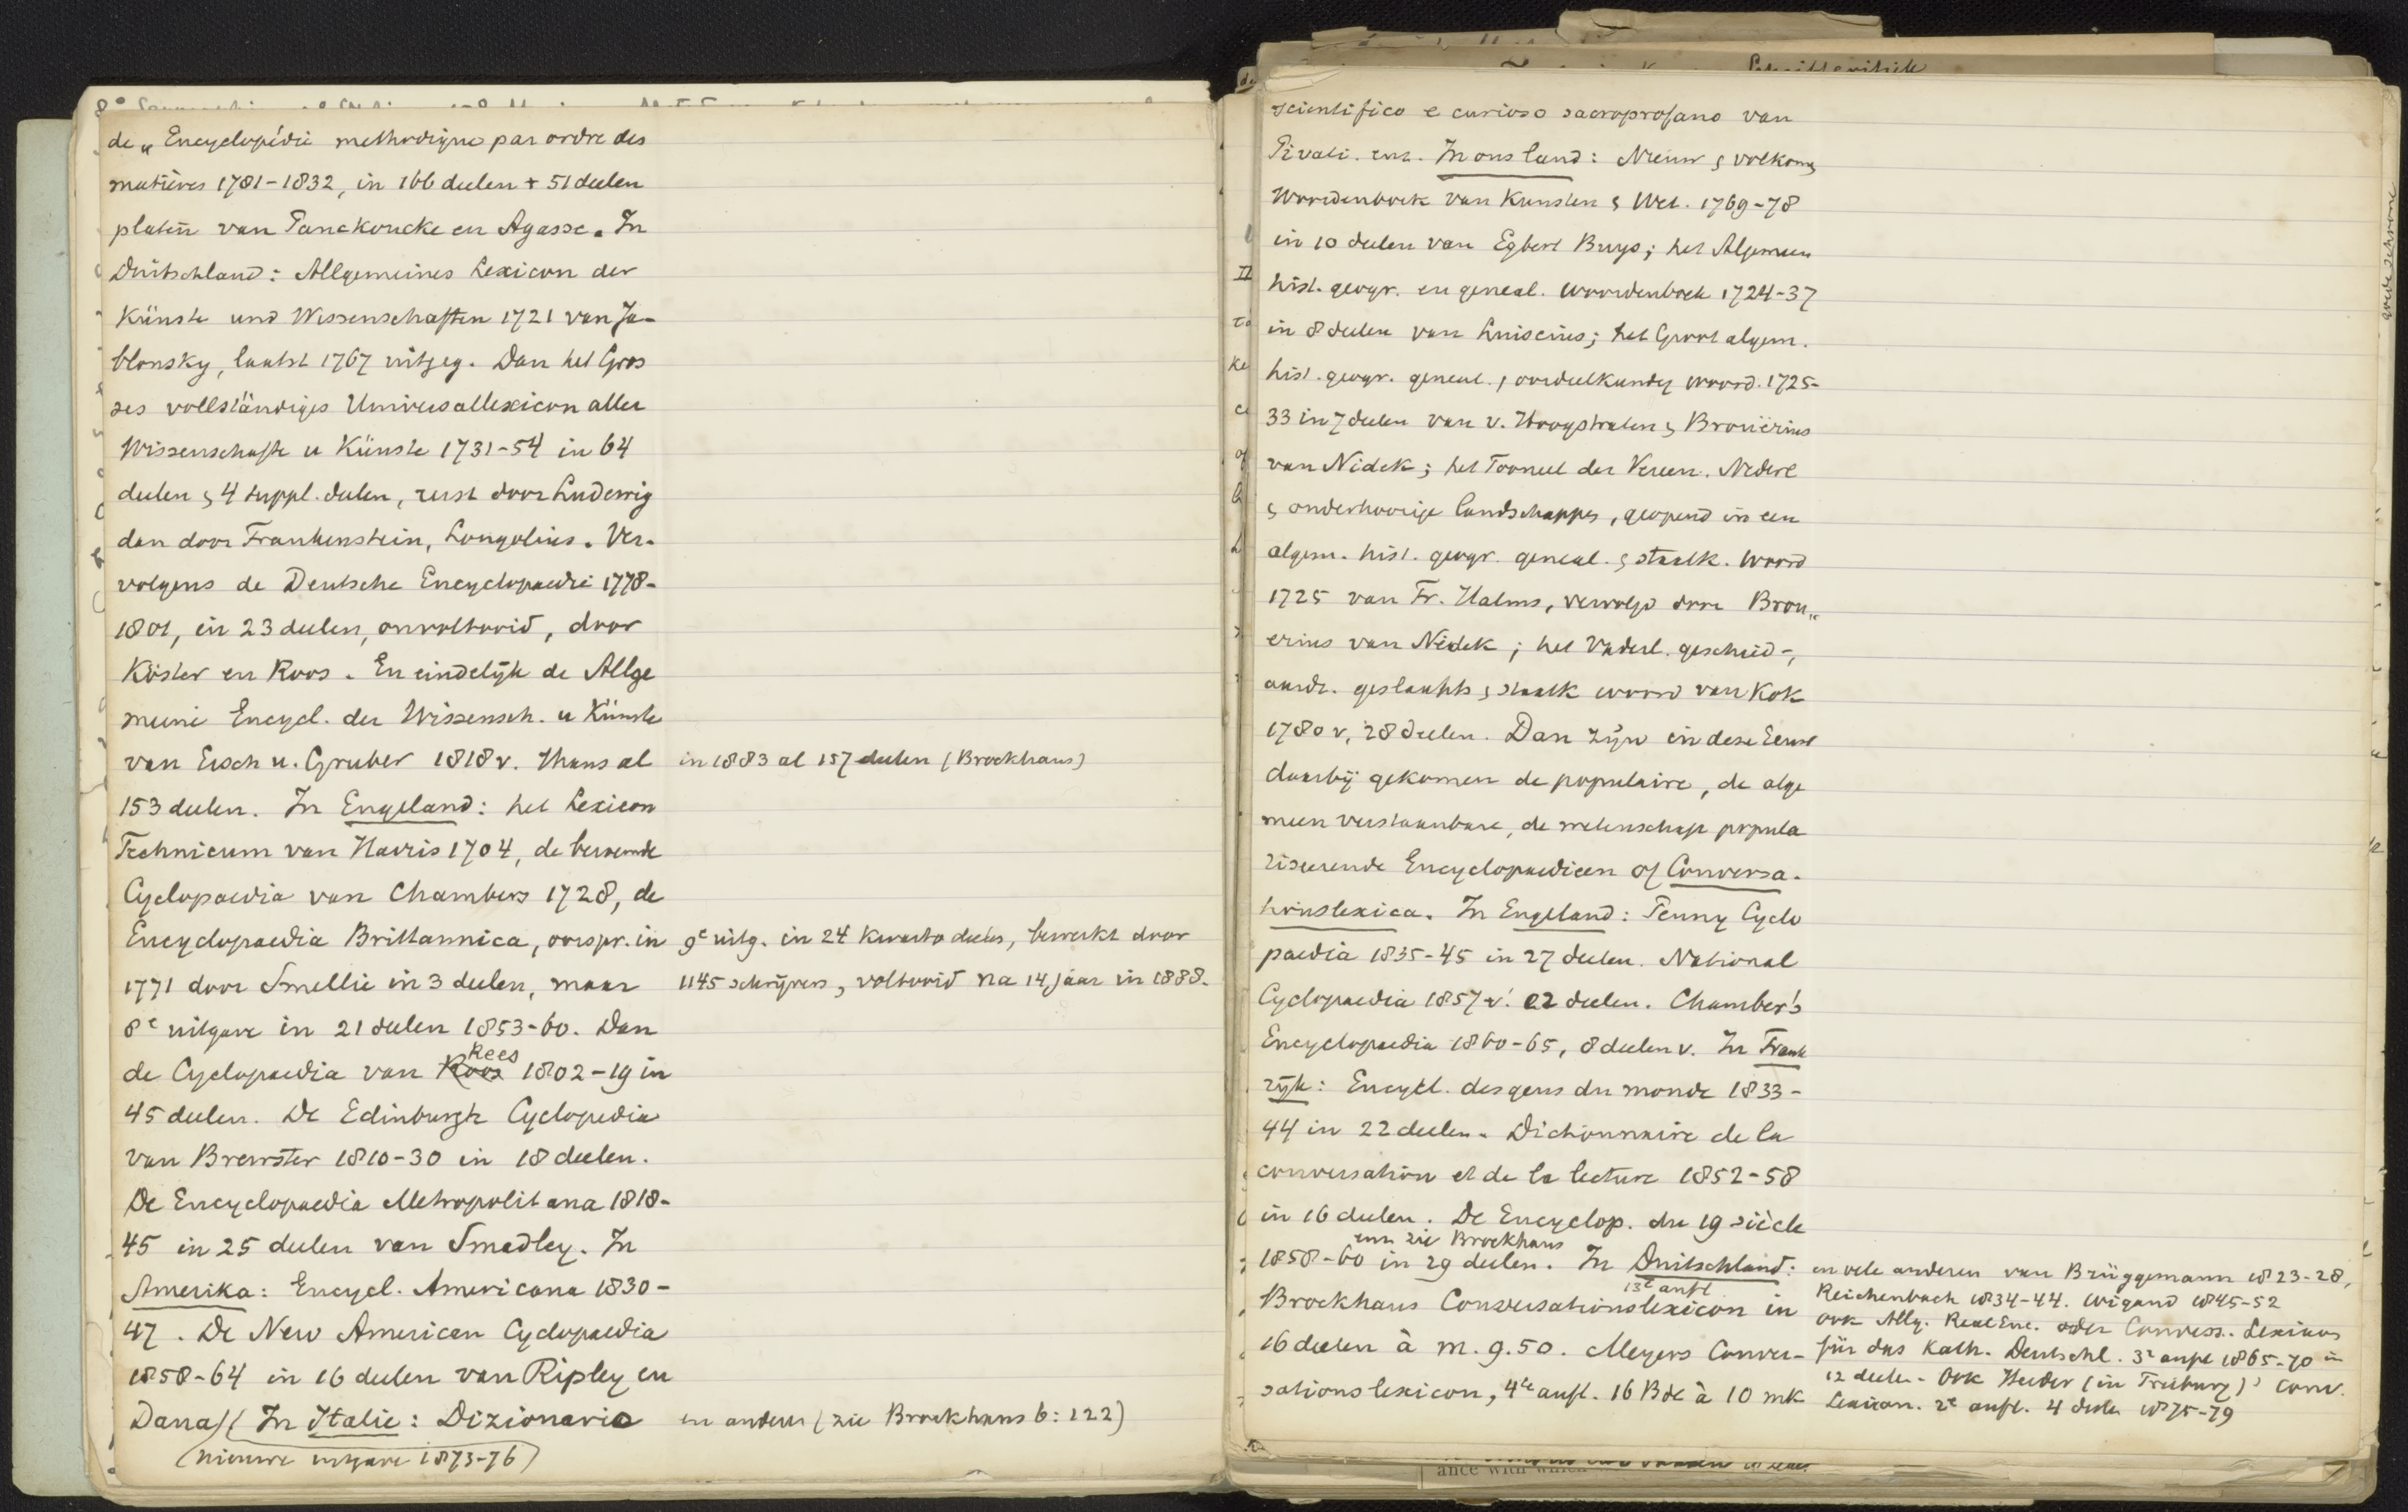 de „Encyclopédie methodique par ordre des
matières 1781-1832, in 166 deelen + 51 deelen
platen van Panckoucke en Agasse. In
Duitschland: Allgemeines Lexicon der
Künste und Wissenschaften 1721 van Ja-
blonsky, laatst 1767 uitgeg. Dan het Gros
ses vollständiges Universallexicon aller
Wissenschafte u Künste 1731-54 in 64
deelen & 4 suppl. deelen, eerst door Ludewig
dan door Frankenstein, Longolius. Ver-
volgens de Deutsche Encyclopaedie 1778-
1801, in 23 deelen, onvoltooid, door
Köster en Roos. En eindelijk de Allge
meine Encycl. der Wissensch. u Künste
van Ersch u. Gruber 1818 v. Thans al
in 1883 al 157 deelen (Brockhaus)
153 deelen. In Engeland: het Lexicon
Technicum van Harris 1704, de beroemde
Cyclopaedia van Chambers 1728, de
Encyclopaedia Brittannica, oorspr. in
9e uitg. in 24 kwarto deelen, bewerkt door
1771 door Smellie in 3 deelen, maar
1145 schrijvers, voltooid na 14 jaar in 1888.
8e uitgave in 21 deelen 1853-60. Dan
Rees
de Cyclopaedia van Roos 1802-19 in
45 deelen. De Edinburgh Cyclopedia
van Brewster 1810-30 in 18 deelen.
De Encyclopaedia Metropolitana 1818-
45 in 25 deelen van Smedley. In
Amerika: Encycl. Americana 1830-
47. De New American Cyclopaedia
1858-64 in 16 deelen van Ripley en
Dana/( In Italie: Dizionario
en anderen (zie Brockhaus 6:122)
(nieuwe uitgave 1873-76)
scientifico e curioso sacroprofano van
Pivati. enz. In ons land: Nieuw & volkomen
Woordenboek van Kunsten & Wet. 1769-78
in 10 deelen van Egbert Buys; het Algemeen
hist. geogr. en geneal. woordenboek 1724-37
in 8 deelen van Luiscius; het Groot algem.
hist. geogr. geneal. & oordeelkundig woord. 1725-
33 in 7 deelen van v. Hoogstraten & Brouërius
van Nidek; het Tooneel der Vereen. Nederl
& onderhoorige landschappen, geopend in een
algem. hist. geogr. geneal. & staatk. woord
1725 van Fr. Halma, vervolgd door Brou„
erius van Nidek; het Vaderl. geschied-,
aardr. geslachts & staatk woord van Kok
1780 v, 28 deelen. Dan zijn in deze Eeuw
daarbij gekomen de populaire, de alge
meen verstaanbare, de wetenschap popula
riseerende Encyclopaedieen of Conversa-
tionslexica. In Engeland: Penny Cyclo
paedia 1835-45 in 27 deelen. National
Cyclopaedia 1857 v. 22 deelen. Chamber's
Encyclopaedia 1860-65, 8 deelen v. In Frank
rijk: Encycl. des gens du monde 1833-
44 in 22 deelen. Dictionnaire de la
conversation et de la lecture 1852-58
in 16 deelen. De Encyclop. du 19 siècle
enz zie Brockhaus
1858-60 in 29 deelen. In Duitschland:
13e aufl
Brockhaus Conversationslexicon in
16 deelen à m. 9.50. Meyers Conver-
sationslexicon, 4te aufl. 16 Bde à 10 mk
en vele anderen van Brüggemann 1823-28,
Reichenbach 1834-44. Wigand 1845-52
ook Allg. Real Enc. oder Convers. Lexicon
für das Kath. Deutschl. 3e aufl 1865-70 in
12 deelen. Ook Herder (in Freiburg)' Conv.
Lexicon. 2e aufl. 4 deele 1875-79